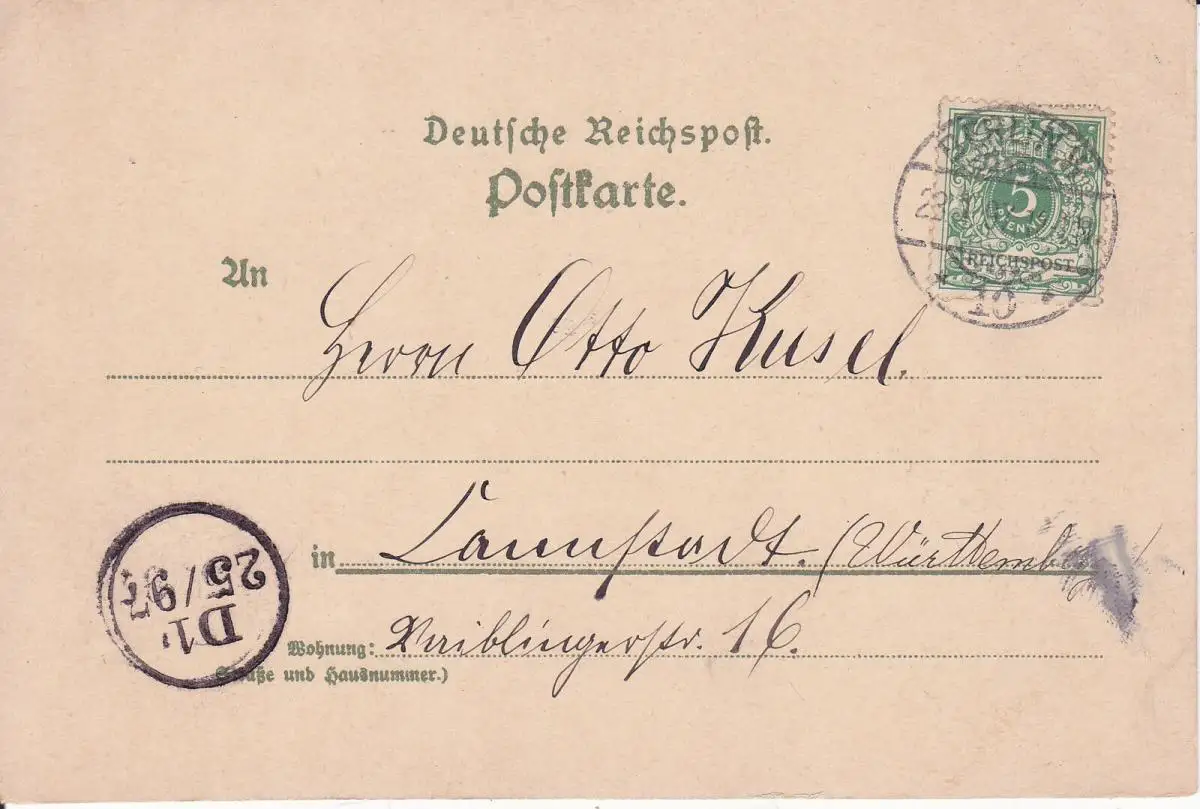 Deutsche Reichspost.
Postkarte.
5
PFENNIG
REICHSPOST
10
An
Herrn Otto Kusel.
in Cannstadt. (Württemberg)
Wohnung: Waiblingerstr. 16.
(Straße und Hausnummer.)
D1.
25/97